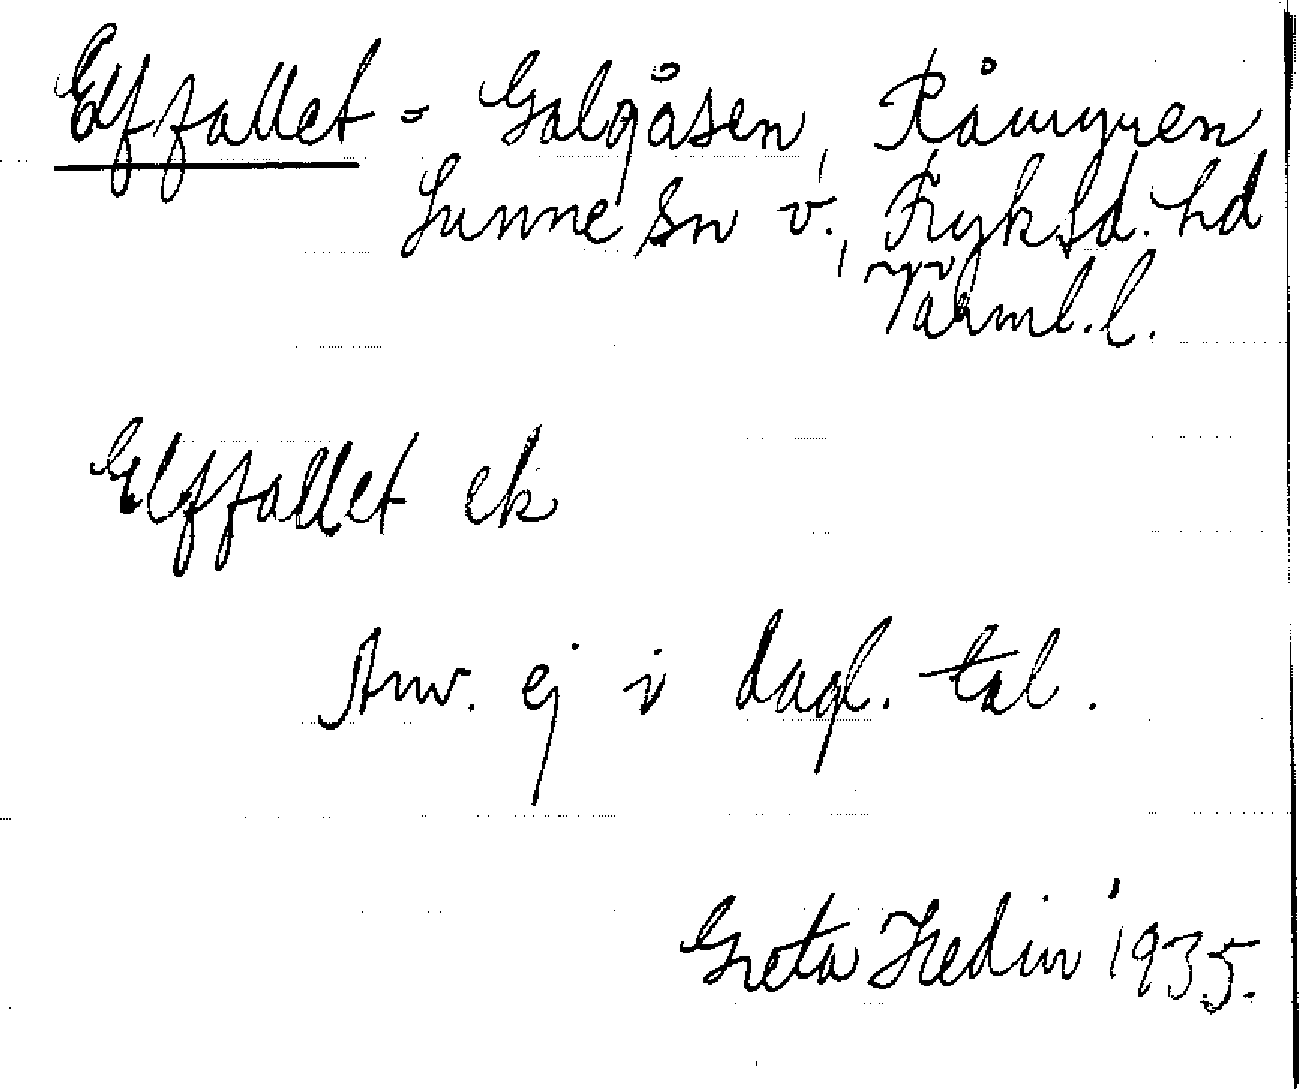 Elffallet = Galgåsen, Råmyren
Sunne sn v., Fryksd. hd
Värml. l.
Elffallet ek
Anv. ej i dagl. tal.
Greta Hedin 1935.